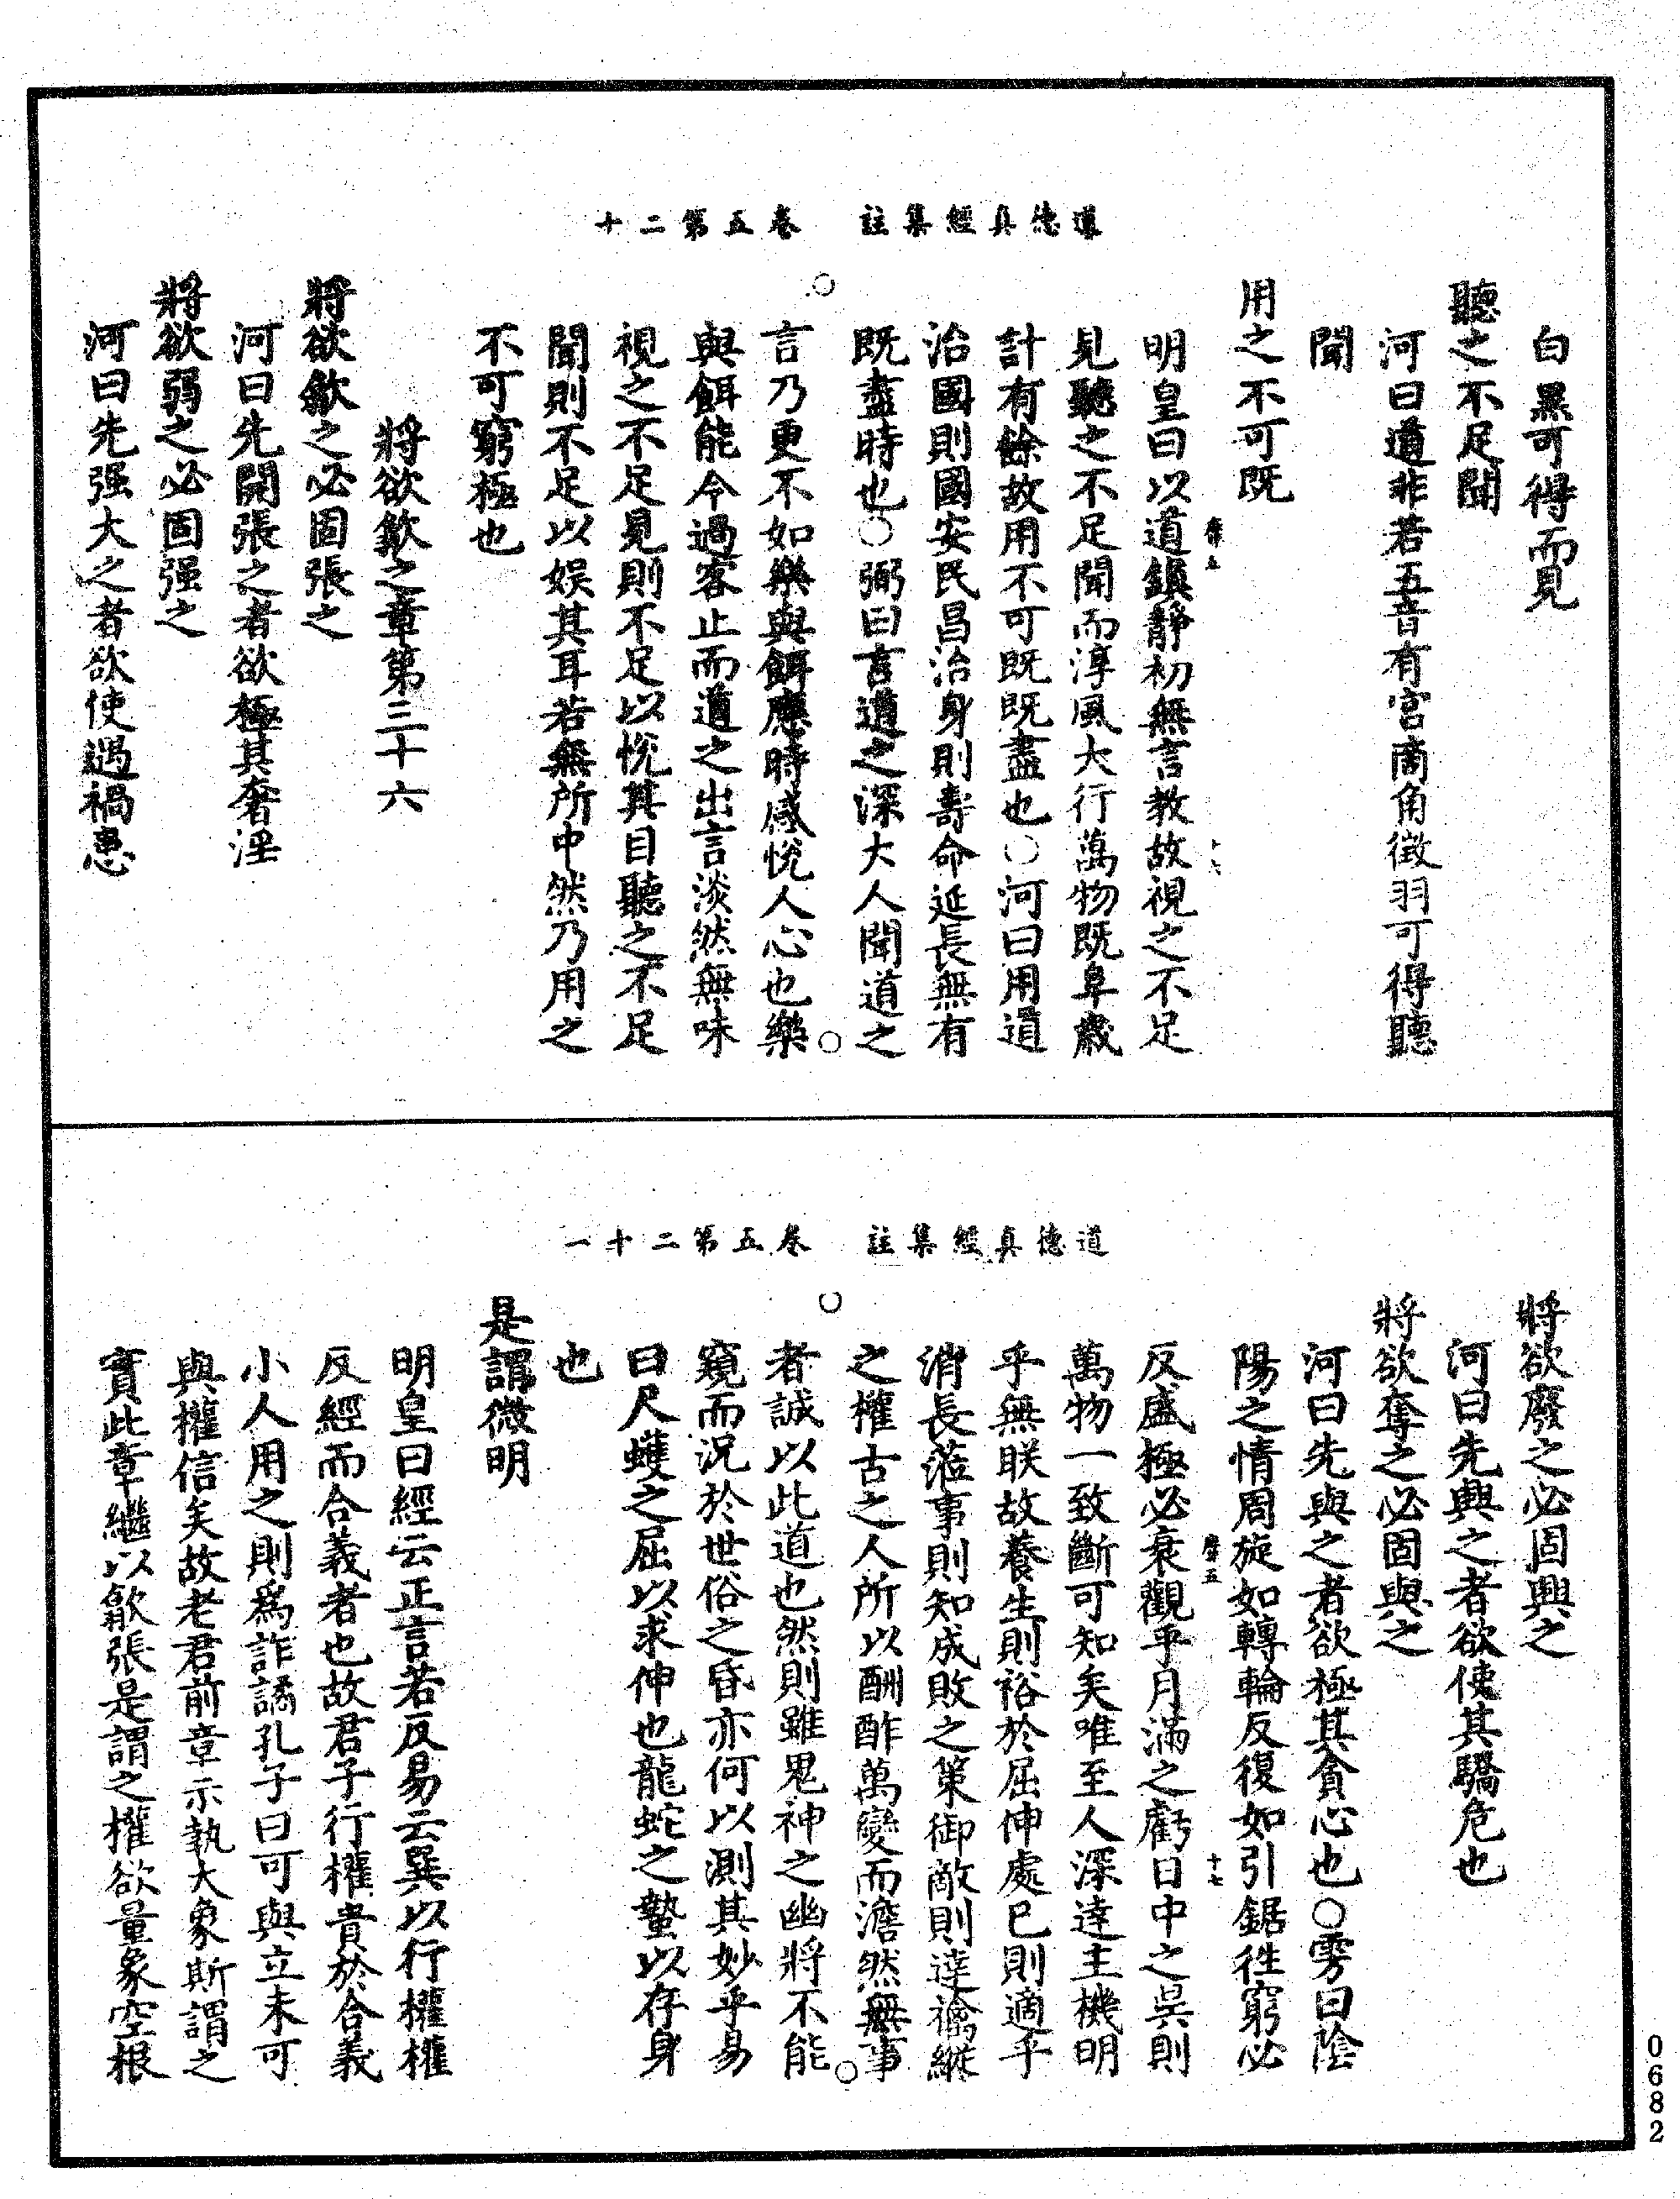 道德真經集註　卷五第二十
白黑可得而見
聽之不足聞
河曰道非若五音有宮商角徵羽可得聽
聞
用之不可既
明皇曰以道鎮靜初無言教故視之不足
見聽之不足聞而淳風大行萬物既阜歲
計有餘故用不可既既盡也○河曰用道
治國則國安民昌治身則壽命延長無有
既盡時也○弼曰言道之深大人聞道之
言乃更不如樂與餌應時感悅人心也樂
與餌能令過客止而道之出言淡然無味
視之不足見則不足以悅其目聽之不足
聞則不足以娛其耳若無所中然乃用之
不可窮極也
將欲歙之章第三十六
將欲歙之必固張之
河曰先開張之者欲極其奢淫
將欲弱之必固强之
河曰先强大之者欲使遇禍患
道德真經集註　卷五第二十一
將欲廢之必固興之
河曰先興之者欲使其驕危也
將欲奪之必固與之
河曰先與之者欲極其貪心也○雱曰陰
陽之情周旋如轉輪反復如引鋸往窮必
反盛極必衰觀乎月滿之虧日中之昃則
萬物一致斷可知矣唯至人深達主機明
乎無眹故養生則裕於屈伸處已則適乎
消長蒞事則知成敗之策御敵則達擒縱
之權古之人所以酬酢萬變而澹然無事
者誠以此道也然則雖鬼神之幽將不能
窺而況於世俗之昏亦何以測其妙乎易
曰尺蠖之屈以求伸也龍蛇之蟄以存身
也
是謂微明
明皇曰經云正言若反易云巽以行權權
反經而合義者也故君子行權貴於合義
小人用之則爲詐譎孔子曰可與立未可
與權信矣故老君前章示執大象斯謂之
實此章繼以歙張是謂之權欲量象空根
0682